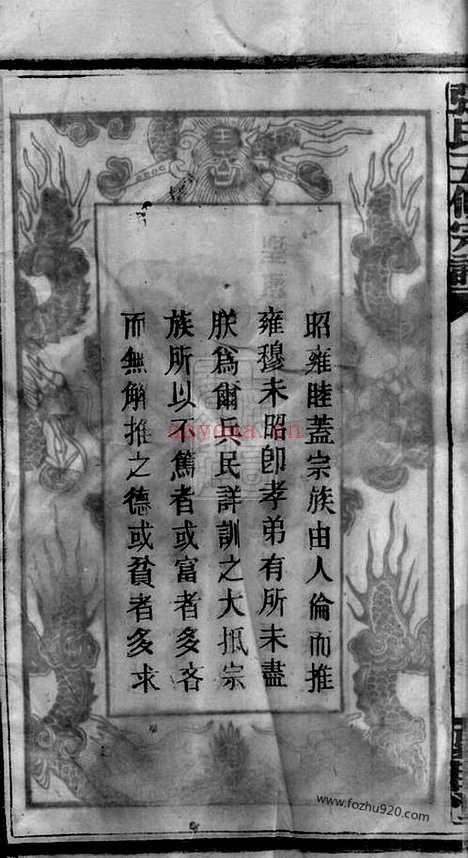 昭雍睦蓋宗族由人倫而推
雍穆未昭卽孝弟有所未盡
朕爲爾兵民詳訓之大抵宗
族所以不篤者或富者多吝
而無觧推之德或貧者多求
www.fozhu920.com